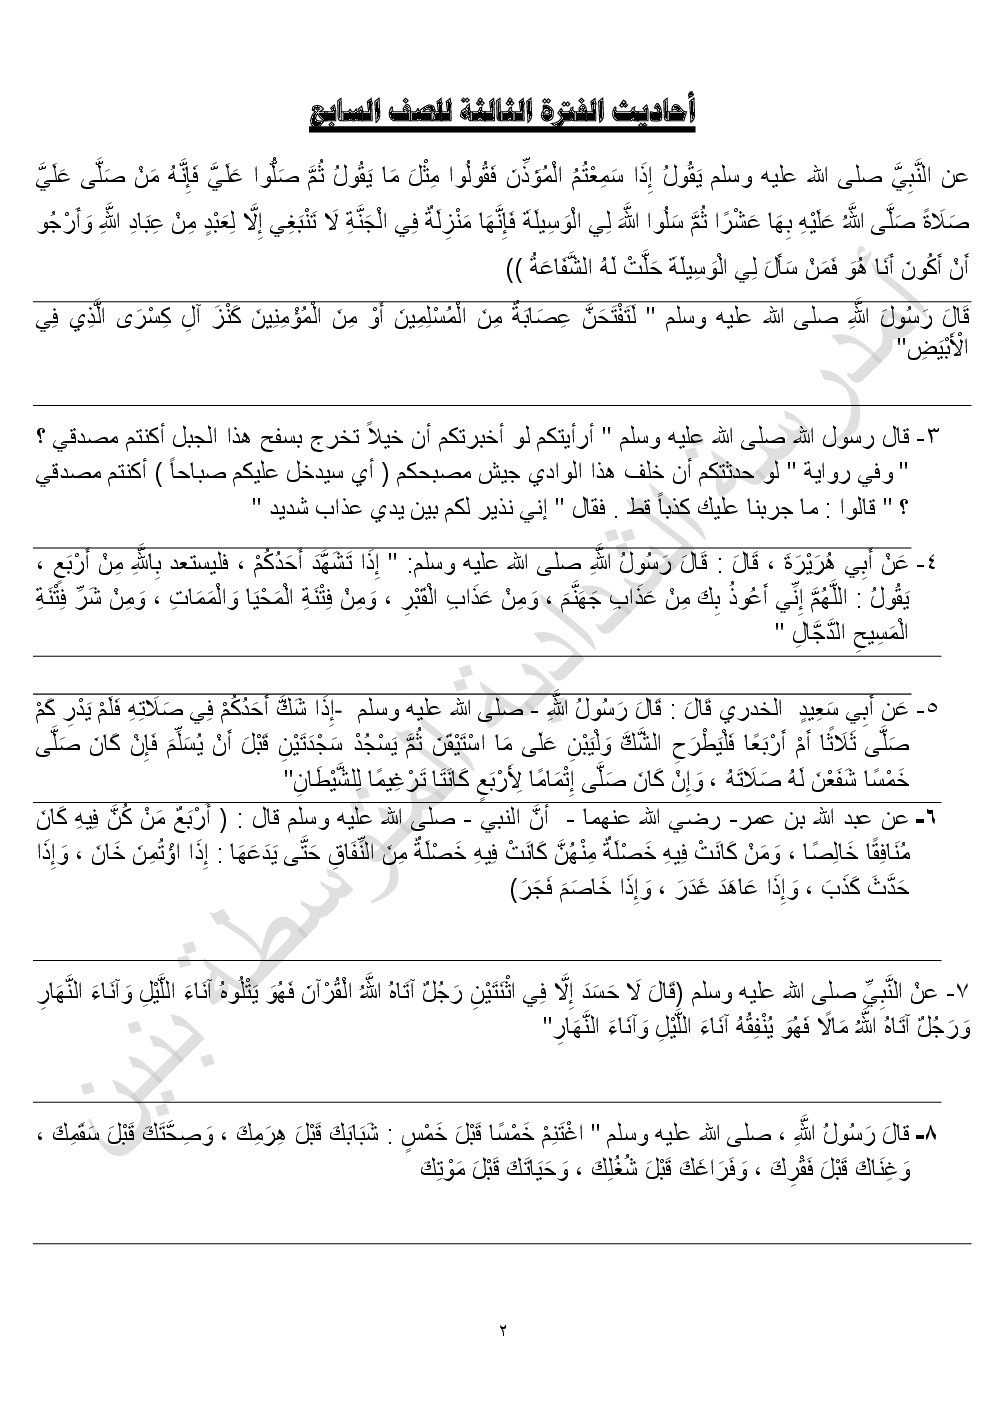 أحاديث الفترة الثالثة للصف السابع
عن النَّبِيَّ صلى الله عليه وسلم يَقُولُ إِذَا سَمِعْتُمُ الْمُؤَذِّنَ فَقُولُوا مِثْلَ مَا يَقُولُ ثُمَّ صَلُّوا عَلَيَّ فَإِنَّهُ مَنْ صَلَّى عَلَيَّ
صَلَاةً صَلَّى اللَّهُ عَلَيْهِ بِهَا عَشْرًا ثُمَّ سَلُوا اللَّهَ لِي الْوَسِيلَةَ فَإِنَّهَا مَنْزِلَةٌ فِي الْجَنَّةِ لَا تَنْبَغِي إِلَّا لِعَبْدٍ مِنْ عِبَادِ اللَّهِ وَأَرْجُو
أَنْ أَكُونَ أَنَا هُوَ فَمَنْ سَأَلَ لِي الْوَسِيلَةَ حَلَّتْ لَهُ الشَّفَاعَةُ ))
قَالَ رَسُولَ اللَّهِ صلى الله عليه وسلم " لَتَفْتَحَنَّ عِصَابَةٌ مِنَ الْمُسْلِمِينَ أَوْ مِنَ الْمُؤْمِنِينَ كَنْزَ آلِ كِسْرَى الَّذِي فِي
الْأَبْيَضِ"
٣- قال رسول الله صلى الله عليه وسلم " أرأيتكم لو أخبرتكم أن خيلاً تخرج بسفح هذا الجبل أكنتم مصدقي ؟
" وفي رواية " لو حدثتكم أن خلف هذا الوادي جيش مصبحكم ( أي سيدخل عليكم صباحاً ) أكنتم مصدقي
؟ " قالوا : ما جربنا عليك كذباً قط . فقال " إني نذير لكم بين يدي عذاب شديد "
٤- عَنْ أَبِي هُرَيْرَةَ ، قَالَ : قَالَ رَسُولُ اللَّهِ صلى الله عليه وسلم: " إِذَا تَشَهَّدَ أَحَدُكُمْ ، فليستعد بِاللَّهِ مِنْ أَرْبَعٍ ،
يَقُولُ : اللَّهُمَّ إِنِّي أَعُوذُ بِكَ مِنْ عَذَابِ جَهَنَّمَ ، وَمِنْ عَذَابِ الْقَبْرِ ، وَمِنْ فِتْنَةِ الْمَحْيَا وَالْمَمَاتِ ، وَمِنْ شَرِّ فِتْنَةِ
الْمَسِيحِ الدَّجَّالِ "
٥- عَن أَبِي سَعِيدٍ الخدري قَالَ : قَالَ رَسُولُ اللَّهِ - صلى الله عليه وسلم -إِذَا شَكَّ أَحَدُكُمْ فِي صَلَاتِهِ فَلَمْ يَدْرِ كَمْ
صَلَّى ثَلَاثًا أَمْ أَرْبَعًا فَلْيَطْرَحِ الشَّكَّ وَلْيَبْنِ عَلَى مَا اسْتَيْقَنَ ثُمَّ يَسْجُدْ سَجْدَتَيْنِ قَبْلَ أَنْ يُسَلِّمَ فَإِنْ كَانَ صَلَّى
خَمْسًا شَفَعْنَ لَهُ صَلَاتَهُ ، وَإِنْ كَانَ صَلَّى إِتْمَامًا لِأَرْبَعٍ كَانَتَا تَرْغِيمًا لِلشَّيْطَانِ"
٦- عن عبد الله بن عمر- رضي الله عنهما - أنَّ النبي - صلى الله عليه وسلم قال : ( أَرْبَعٌ مَنْ كُنَّ فِيهِ كَانَ
مُنَافِقًا خَالِصًا ، وَمَنْ كَانَتْ فِيهِ خَصْلَةٌ مِنْهُنَّ كَانَتْ فِيهِ خَصْلَةٌ مِنَ النِّفَاقِ حَتَّى يَدَعَهَا : إِذَا اؤْتُمِنَ خَانَ ، وَإِذَا
حَدَّثَ كَذَبَ ، وَإِذَا عَاهَدَ غَدَرَ ، وَإِذَا خَاصَمَ فَجَرَ)
٧- عنْ النَّبِيِّ صلى الله عليه وسلم (قَالَ لَا حَسَدَ إِلَّا فِي اثْنَتَيْنِ رَجُلٌ آتَاهُ اللَّهُ الْقُرْآنَ فَهُوَ يَتْلُوهُ آنَاءَ اللَّيْلِ وَآنَاءَ النَّهَارِ
وَرَجُلٌ آتَاهُ اللَّهُ مَالًا فَهُوَ يُنْفِقُهُ آنَاءَ اللَّيْلِ وَآنَاءَ النَّهَارِ"
٨- قالَ رَسُولُ اللَّهِ ، صلى الله عليه وسلم " اغْتَنِمْ خَمْسًا قَبْلَ خَمْسٍ : شَبَابَكَ قَبْلَ هِرَمِكَ ، وَصِحَّتَكَ قَبْلَ سَقَمِكَ ،
وَغِنَاكَ قَبْلَ فَقْرِكَ ، وَفَرَاغَكَ قَبْلَ شُغْلِكَ ، وَحَيَاتَكَ قَبْلَ مَوْتِكَ
٢
مدرسة الشدادية المتوسطة بنين